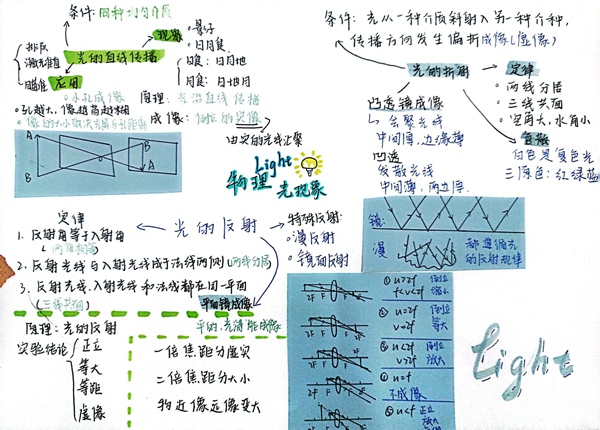 条件: 同种均匀介质
现象
影子
日月食
日食: 日月地
月食: 日地月
光的直线传播
排队
激光准直
瞄准
应用
小孔成像
原理: 光沿直线传播
成像: 倒立的实像
孔越大, 像越亮越糊
像的大小取决于屏与孔距离
由实的光线汇聚
A
B
B
A
Light
物理
光现象
条件: 光从一种介质斜射入另一种介种,
传播方向发生偏折成像(虚像)
光的折射
定律
两线分居
三线共面
空角大, 水角小
色散
白色是复色光
三原色: 红绿蓝
凸透镜成像
会聚光线
中间厚, 边缘薄
凹透
发散光线
中间薄, 两边厚.
镜:
漫
都遵循光
的反射规律
光的反射
定律
1. 反射角等于入射角
(两角相等)
2. 反射光线与入射光线成于法线两侧(两线分居)
3. 反射光线、入射光线和法线都在同一平面
(三线共面)
特殊反射:
漫反射
镜面反射
平面镜成像
平的, 光滑能成像
原理: 光的反射
实验结论
正立
等大
等距
虚像
一倍焦距分虚实
二倍焦距分大小
物近像远像变大
2F F F
① u>2f 倒立
f<v<2f 缩小
2F F F
② u=2f 倒立
v=2f 等大
2F F F
③ u<2f 倒立
v>2f 放大
2F F F
④ u=f
不成像
2F F F
⑤ u<f 正立
放大
Light